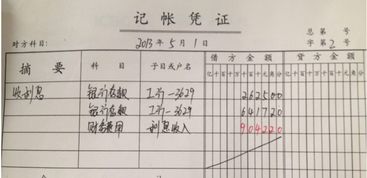 记帐凭证
总 第 号
对方科目: 2013年 5月 1日 字第 2 号
摘要 科目 子目或户名 借方金额 贷方金额
亿千百十万千百十元角分 亿千百十万千百十元角分
收利息 银行存款 工行-3629 262500
银行存款 工行-3629 641720
财务费用 利息收入 904220